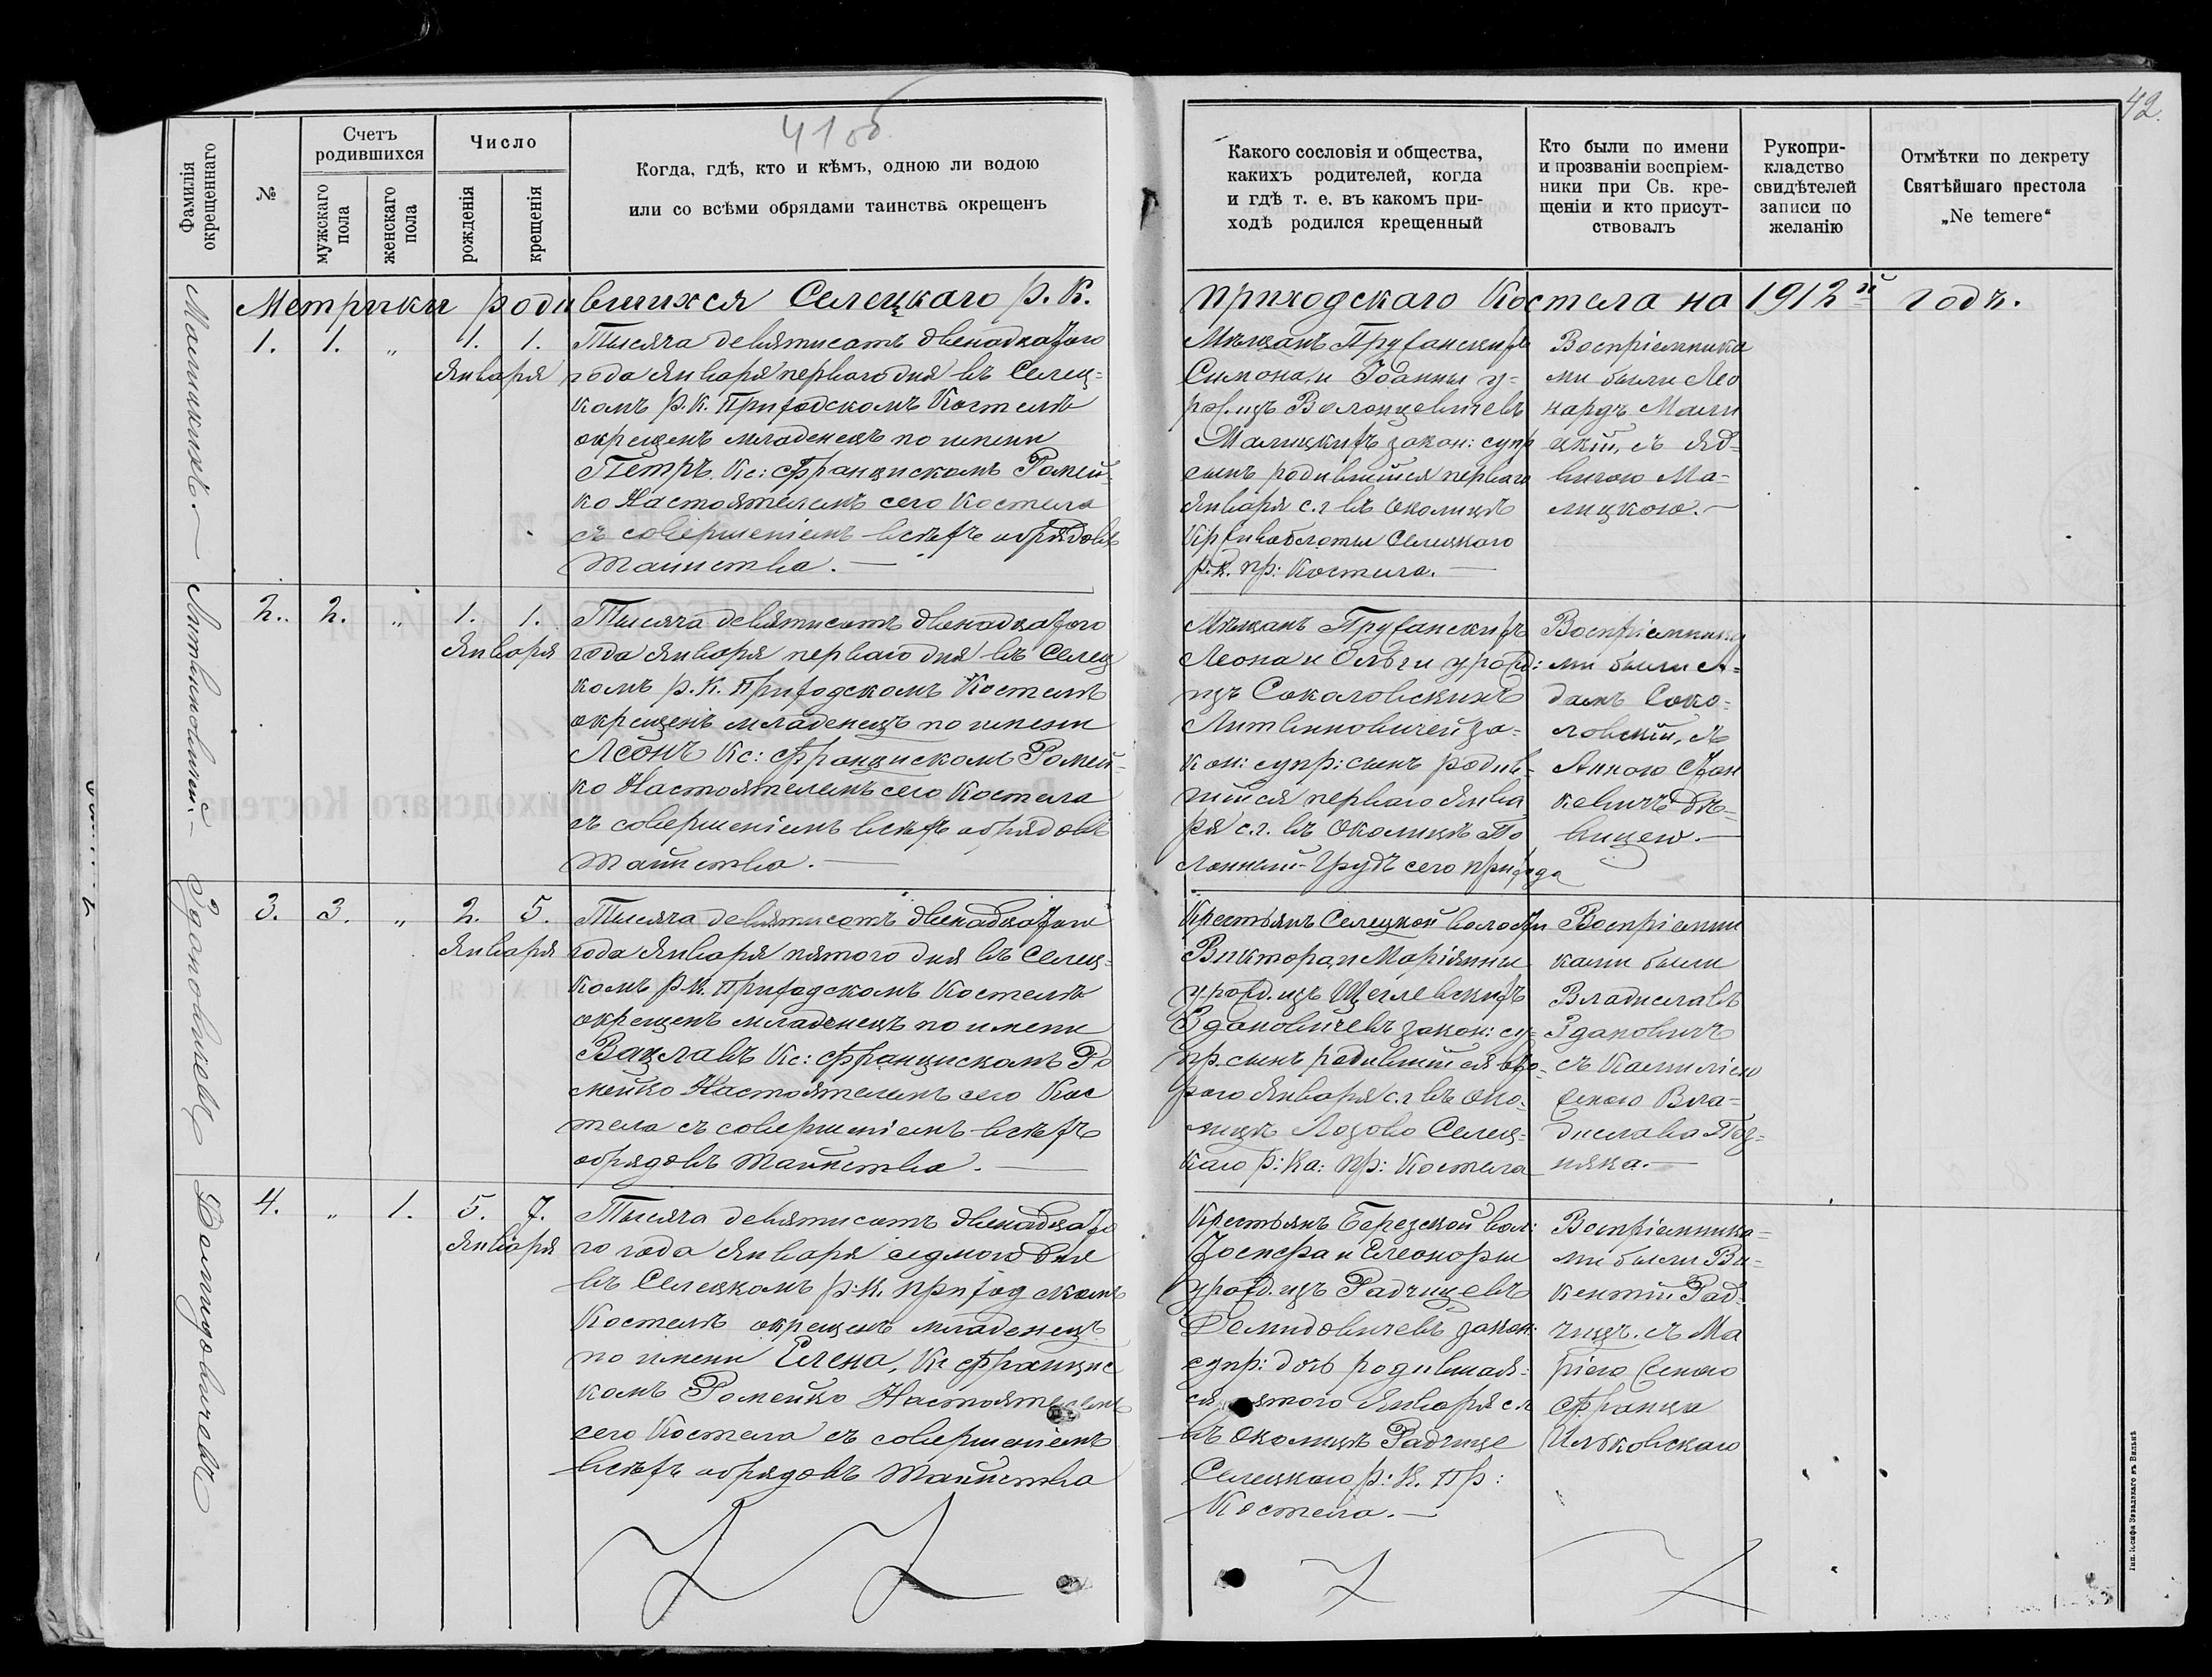 41 об
42.
Фамилія окрещеннаго
№
Счетъ родившихся
мужскаго пола
женскаго пола
Число
рожденія
крещенія
Когда, гдѣ, кто и кѣмъ, одною ли водою
или со всѣми обрядами таинства окрещенъ
Какого сословія и общества,
какихъ родителей, когда
и гдѣ т. е. въ какомъ при-
ходѣ родился крещенный
Кто были по имени
и прозваніи воспріем-
ники при Св. кре-
щеніи и кто присут-
ствовалъ
Рукопри-
кладство
свидѣтелей
записи по
желанію
Отмѣтки по декрету
Святѣйшаго престола
„Ne temere“
Метрыки родившихся Селецкаго р. К. приходскаго Костела на 1912й годъ.
Малицкихъ.—
1. 1. „ 1. 1.
Января
Тысяча девятисотъ двенадцатого
года Января перваго дня въ Селец-
комъ р. К. Приходскомъ Костелѣ
окрещенъ младенецъ по имени
Петръ. Кс: Францискомъ Ромей-
ко Настоятелемъ сего Костела
съ совершеніемъ всѣхъ обрядовъ
таинства.—
Мѣщанъ Пружанскихъ
Симона, и Іоанны у-
рож.ицъ Волонцевичевъ
Малицкихъ закон: супр
сынъ родившійся перваго
Января с.г. въ околицѣ
Селецкаго
р. К. пр: Костела.—
Воспріемника
ми были Лео
нардъ Мали
цкій, съ Яд-
вигою Ма-
лицкою.—
Литвиновичей.—
2. 2. „ 1. 1.
Января
Тысяча девятисотъ двенадцатого
года Января перваго дня въ Селец
комъ р. К. Приходскомъ Костелѣ
окрещенъ младенецъ по имени
Леонъ Кс: Францискомъ Ромей-
ко Настоятелемъ сего Костела
съ совершеніемъ всѣхъ обрядовъ
таинства.—
Мѣщанъ Пружанскихъ
Леона и Ольги урожд:
ицъ Соколовскихъ
Литвиновичей за-
кон: супр: сынъ родив-
шійся перваго Янва
ря с.г. въ Околицѣ
Грудъ сего прихода
Воспріемника
ми были А-
дамъ Соко-
ловскій, съ
Анною
дѣ-
вицею.—
Здановичевъ
3. 3. „ 2. 5.
Января
Тысяча девятисотъ двенадцатого
года Января пятого дня въ Селец-
комъ р. К. Приходскомъ Костелѣ
окрещенъ младенецъ по имени
Вацлавъ Кс: Францискомъ Ро
мейко Настоятелемъ сего Кос
тела съ совершеніемъ всѣхъ
обрядовъ таинства.—
Крестьянъ Селецкой волости
Виктора, и Маріянны
урожд.ицъ Щеглевскихъ
Здановичевъ закон: су-
пр. сынъ родившійся вто-
рого Января с.г. въ око-
лицѣ Лозово Селец-
каго р: Ка: пр: Костела
Воспріемни
ками были
Владиславъ
Здановичъ
съ Камиліею
женою Вла-
дислава Поз-
няка.—
Демидовичевъ
4. „ 1. 5. 7.
Января
Тысяча девятисотъ двенадцато
го года Января седмого дня
въ Селецкомъ р. К. приходскомъ
Костелѣ окрещенъ младенецъ
по имени Елена, Кс Францис
комъ Ромейко Настоятелемъ
сего Костела съ совершеніемъ
всѣхъ обрядовъ таинства
Крестьянъ Березской вол:
Іосифа и Елеоноры
урожд.ицъ Радчицевъ
Демидовичевъ закон:
супр: дочь родившая-
ся пятого Января с.г
въ околицѣ Радчице
Селецкаго р: К. Пр:
Костела.—
Воспріемника-
ми были Ви-
кентій Рад-
чицъ. съ Ма
ріею женою
Франца
Ильковскаго
Тип. Іосифа Завадзкаго въ Вильнѣ